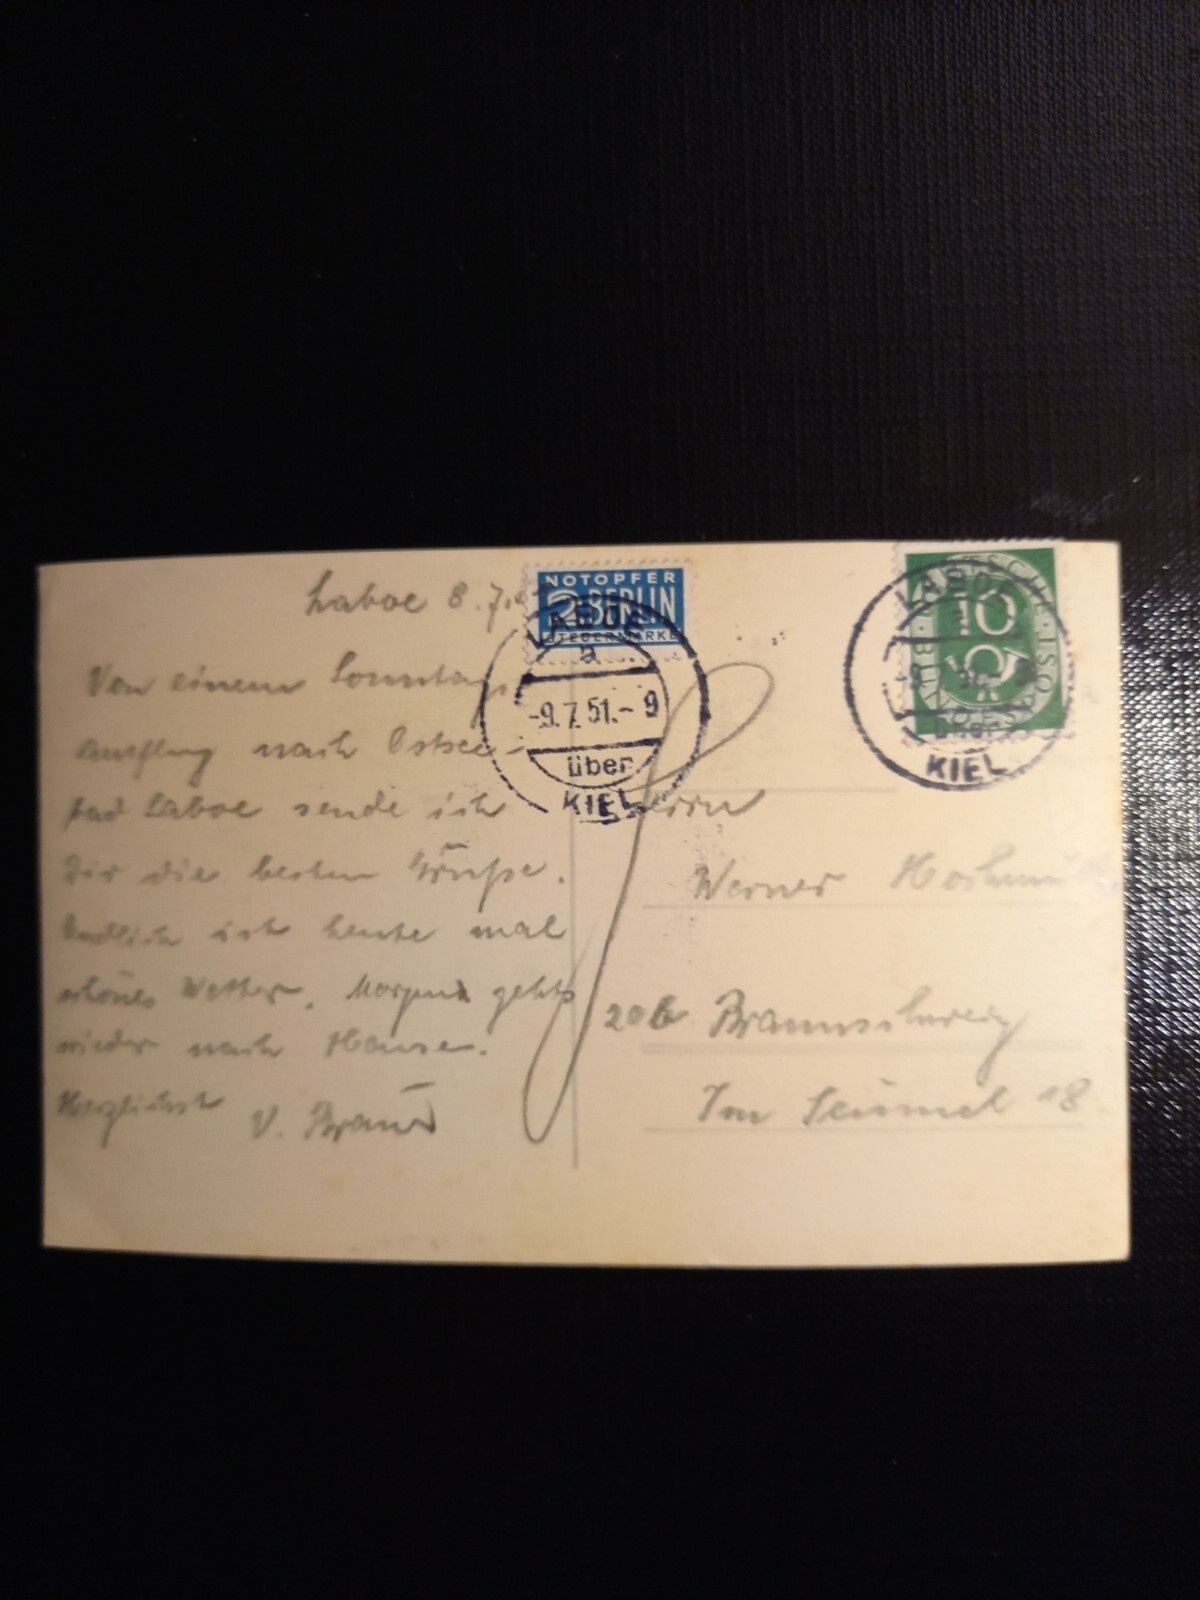 Laboe 8.7.
NOTOPFER
2 BERLIN
STEUERMARKE
LABOE
a
-9.7.51.-9
über
KIEL
DEUTSCHE
BUNDESPOST
10
LABOE
über
KIEL
Von einem Sonntags
Ausflug nach Ostsee-
bad Laboe sende ich
Dir die besten Grüße.
Endlich ist heute mal
schönes Wetter. Morgen gehts
wieder nach Hause.
Herzlichst V. Braun
Herrn
Werner
20b Braunschweig
Im 18